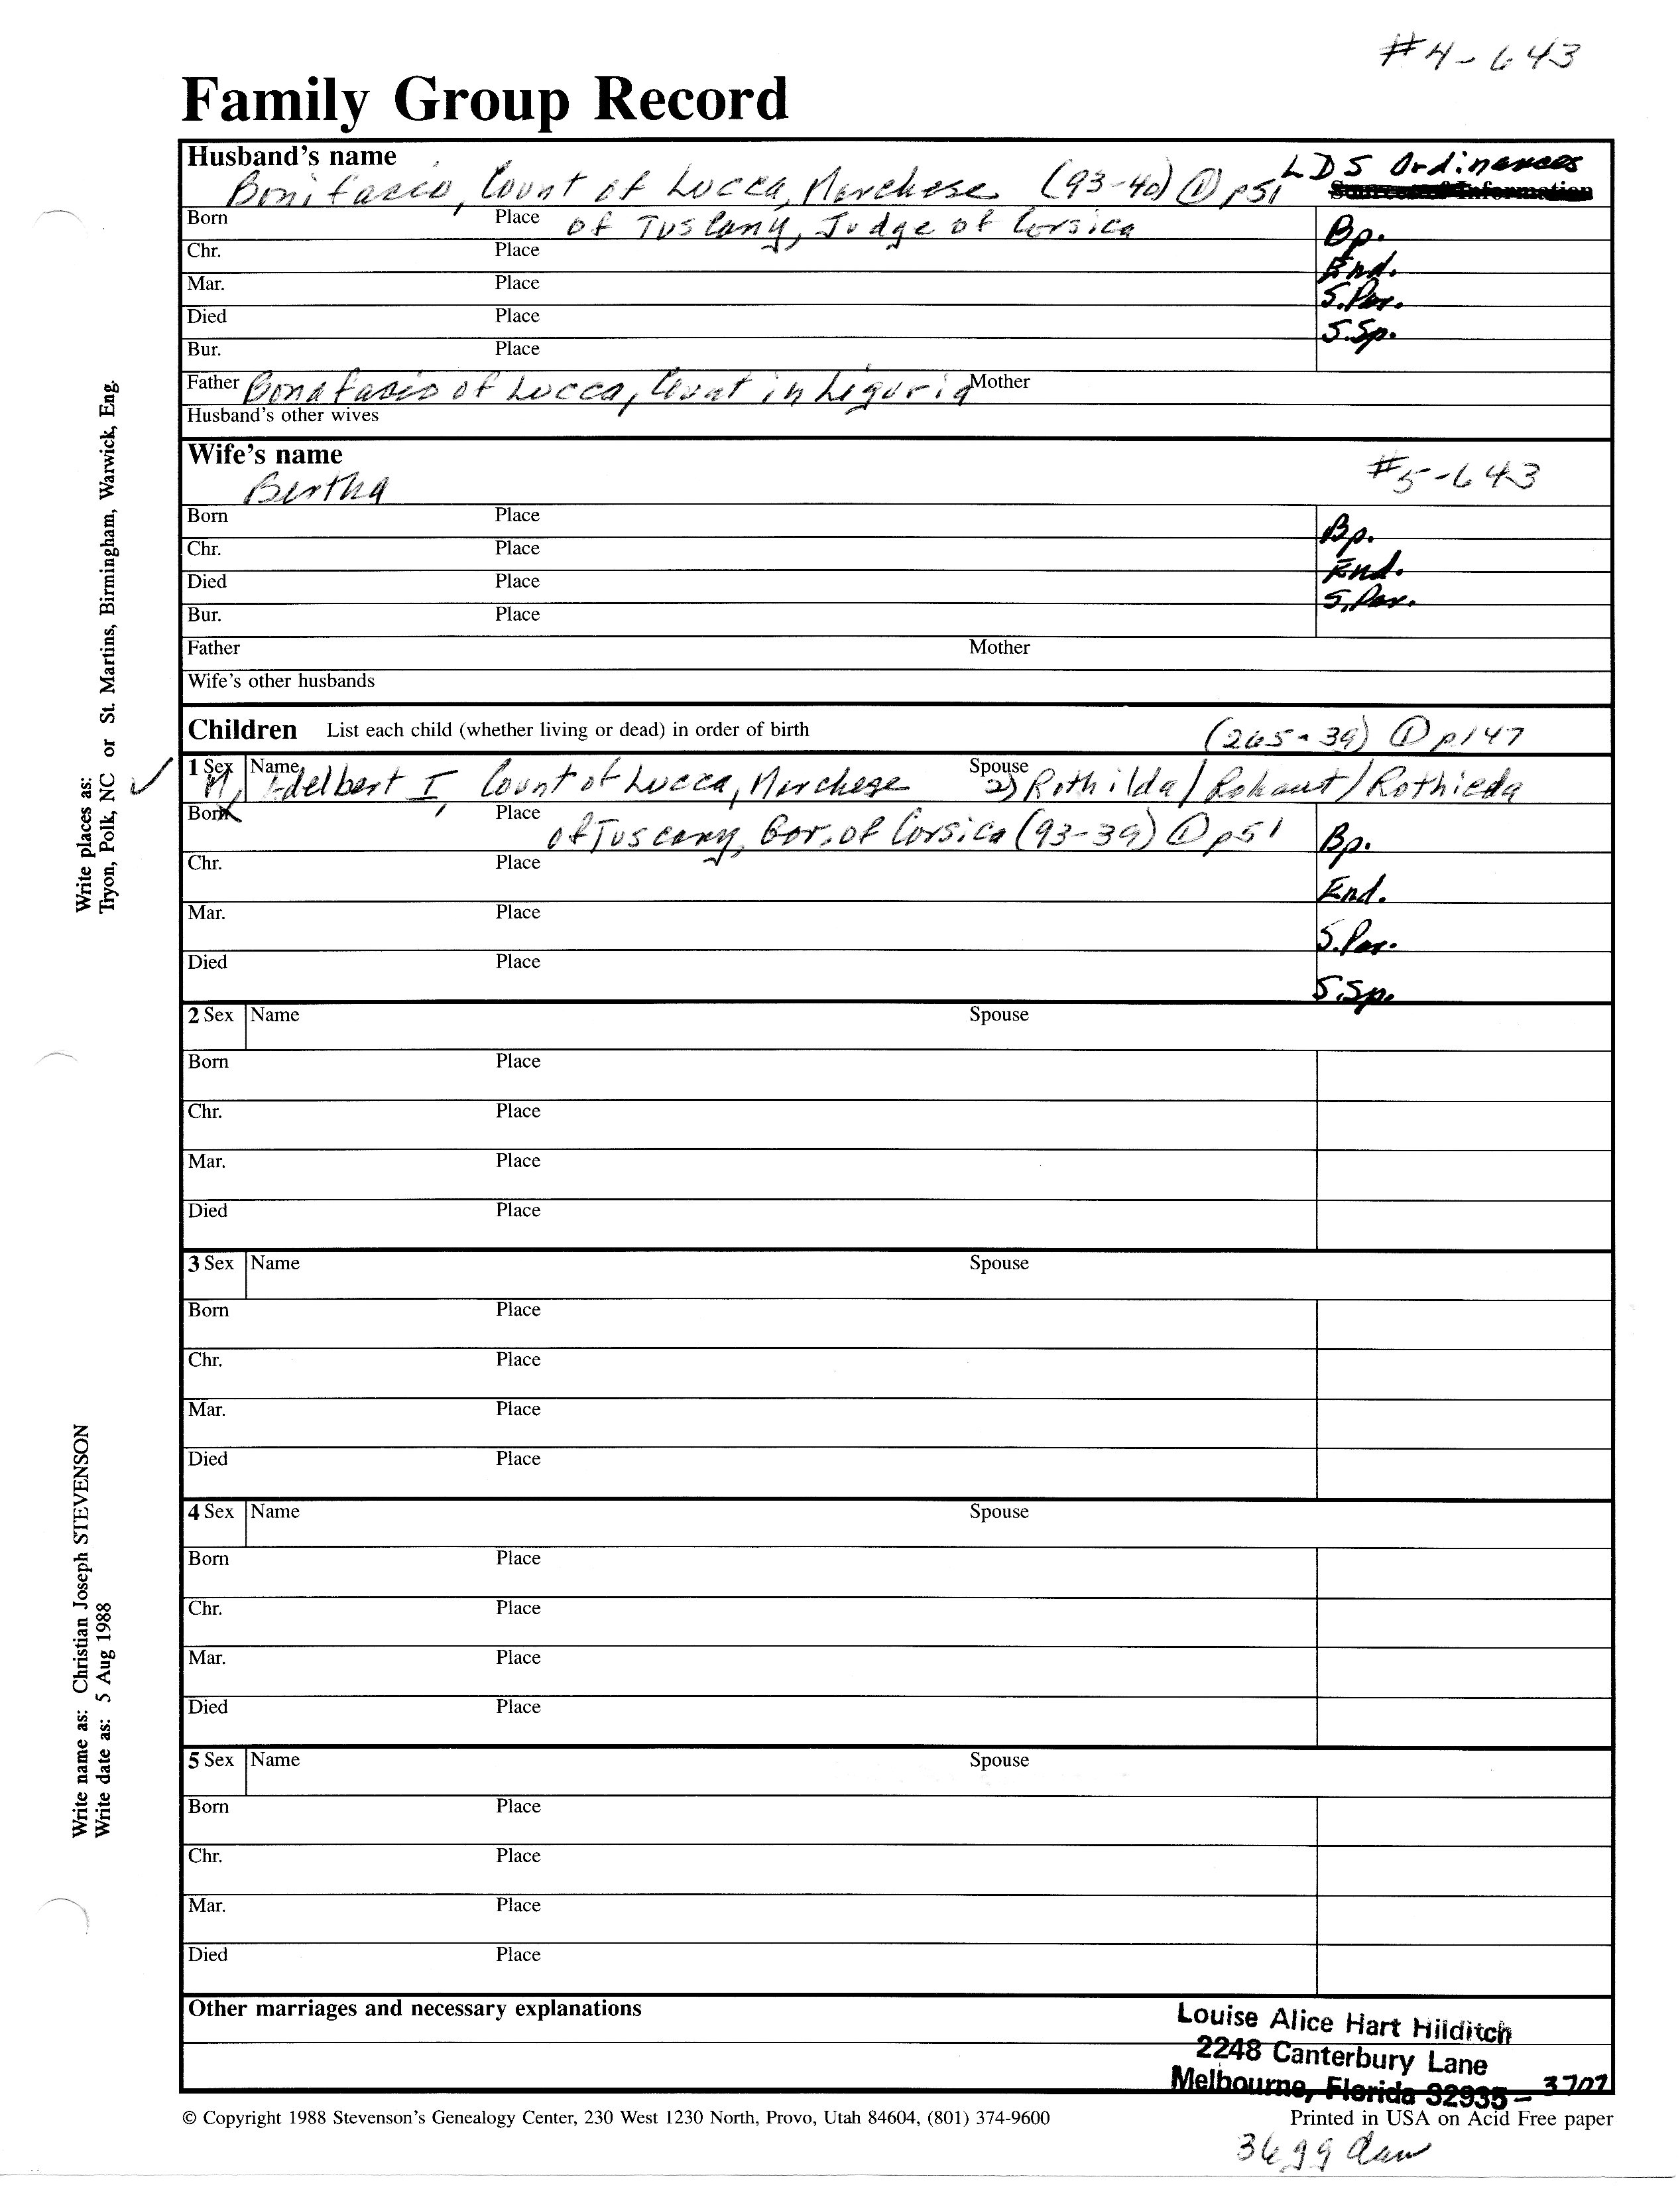 #4-643
Family Group Record
Husband's name
Bonifacio, Count of Lucca, Marchese (93-40) ① p51 LDS Ordinances
Born Place of Tuscany, Judge of Corsica Bp.
Chr. Place End.
Mar. Place S.Par.
Died Place S.Sp.
Bur. Place
Father Bonafacio of Lucca, Count in Liguria Mother
Husband's other wives
Wife's name
Bertha #5-643
Born Place Bp.
Chr. Place End.
Died Place S.Par.
Bur. Place
Father Mother
Wife's other husbands
Children List each child (whether living or dead) in order of birth (265-39) ① p147
1 Sex M Name Edelbert I, Count of Lucca, Marchese Spouse 2) Rothilda/Rohaut/Rothieda
Born Place of Tuscany, Gov. of Corsica (93-39) ① p51 Bp.
Chr. Place End.
Mar. Place S.Par.
Died Place S.Sp.
2 Sex Name Spouse
Born Place
Chr. Place
Mar. Place
Died Place
3 Sex Name Spouse
Born Place
Chr. Place
Mar. Place
Died Place
4 Sex Name Spouse
Born Place
Chr. Place
Mar. Place
Died Place
5 Sex Name Spouse
Born Place
Chr. Place
Mar. Place
Died Place
Other marriages and necessary explanations
Louise Alice Hart Hilditch
2248 Canterbury Lane
Melbourne, Florida 32935-3707
© Copyright 1988 Stevenson's Genealogy Center, 230 West 1230 North, Provo, Utah 84604, (801) 374-9600 Printed in USA on Acid Free paper
3699
Write places as:
Tryon, Polk, NC or St. Martins, Birmingham, Warwick, Eng.
Write name as: Christian Joseph STEVENSON
Write date as: 5 Aug 1988